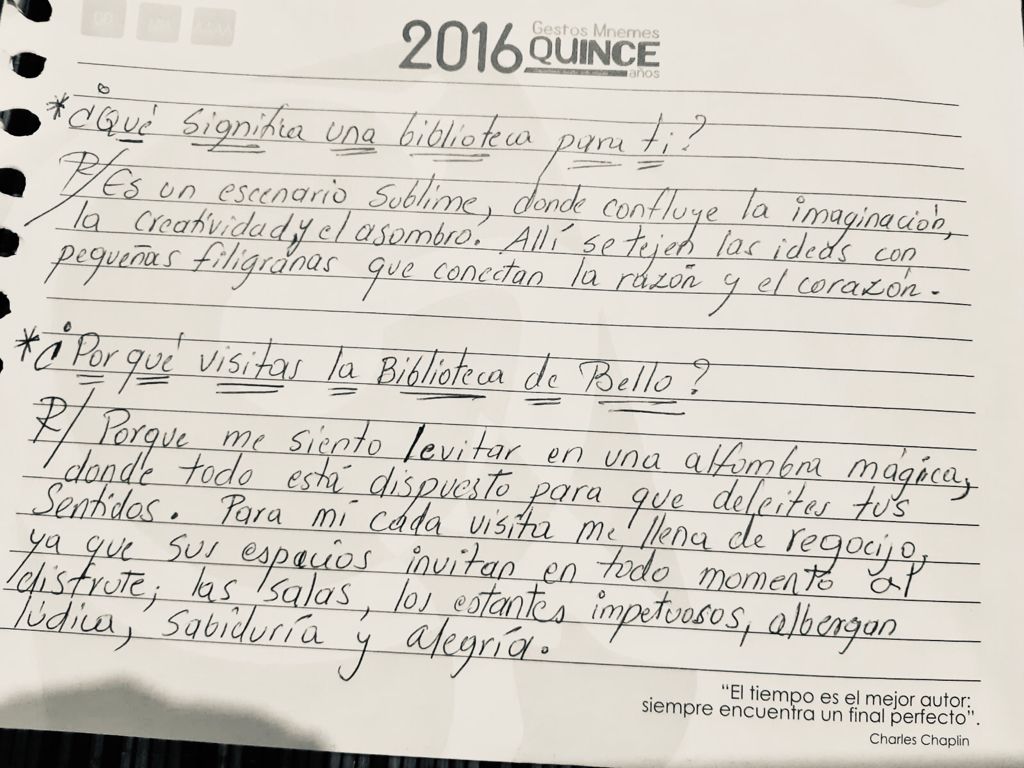 2016 Gestos Mnemes
QUINCE
años
* ¿Qué significa una biblioteca para ti?
R/ Es un escenario sublime, donde confluye la imaginación,
la creatividad y el asombro. Allí se tejen las ideas con
pequeñas filigranas que conectan la razón y el corazón.
* ¿Por qué visitas la Biblioteca de Bello?
R/ Porque me siento levitar en una alfombra mágica,
donde todo está dispuesto para que deleites tus
Sentidos. Para mí cada visita me llena de regocijo,
ya que sus espacios invitan en todo momento al
disfrute; las salas, los estantes impetuosos, albergan
lúdica, sabiduría y alegría.
"El tiempo es el mejor autor;
siempre encuentra un final perfecto".
Charles Chaplin